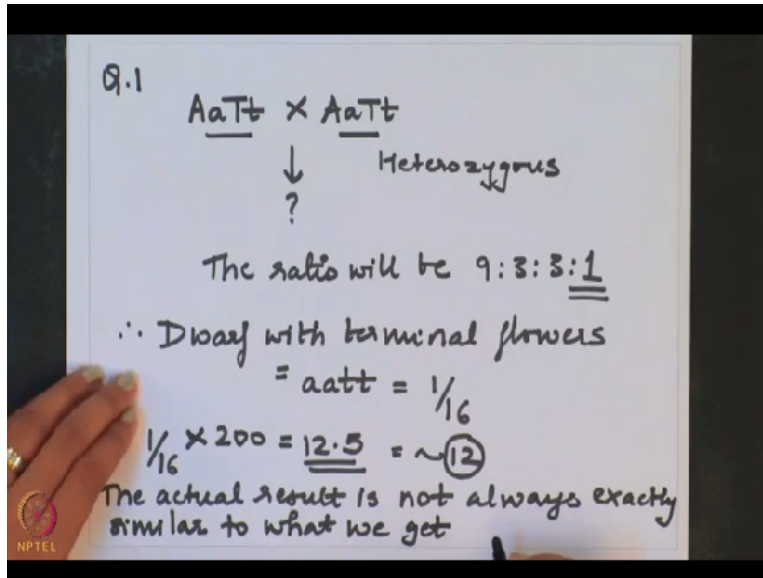 Q.1
AaTt × AaTt
↓ Heterozygous
?
The ratio will be 9:3:3:1
∴ Dwarf with terminal flowers
= aatt = 1/16
1/16 × 200 = 12.5 = ~12
The actual result is not always exactly
similar to what we get
NPTEL